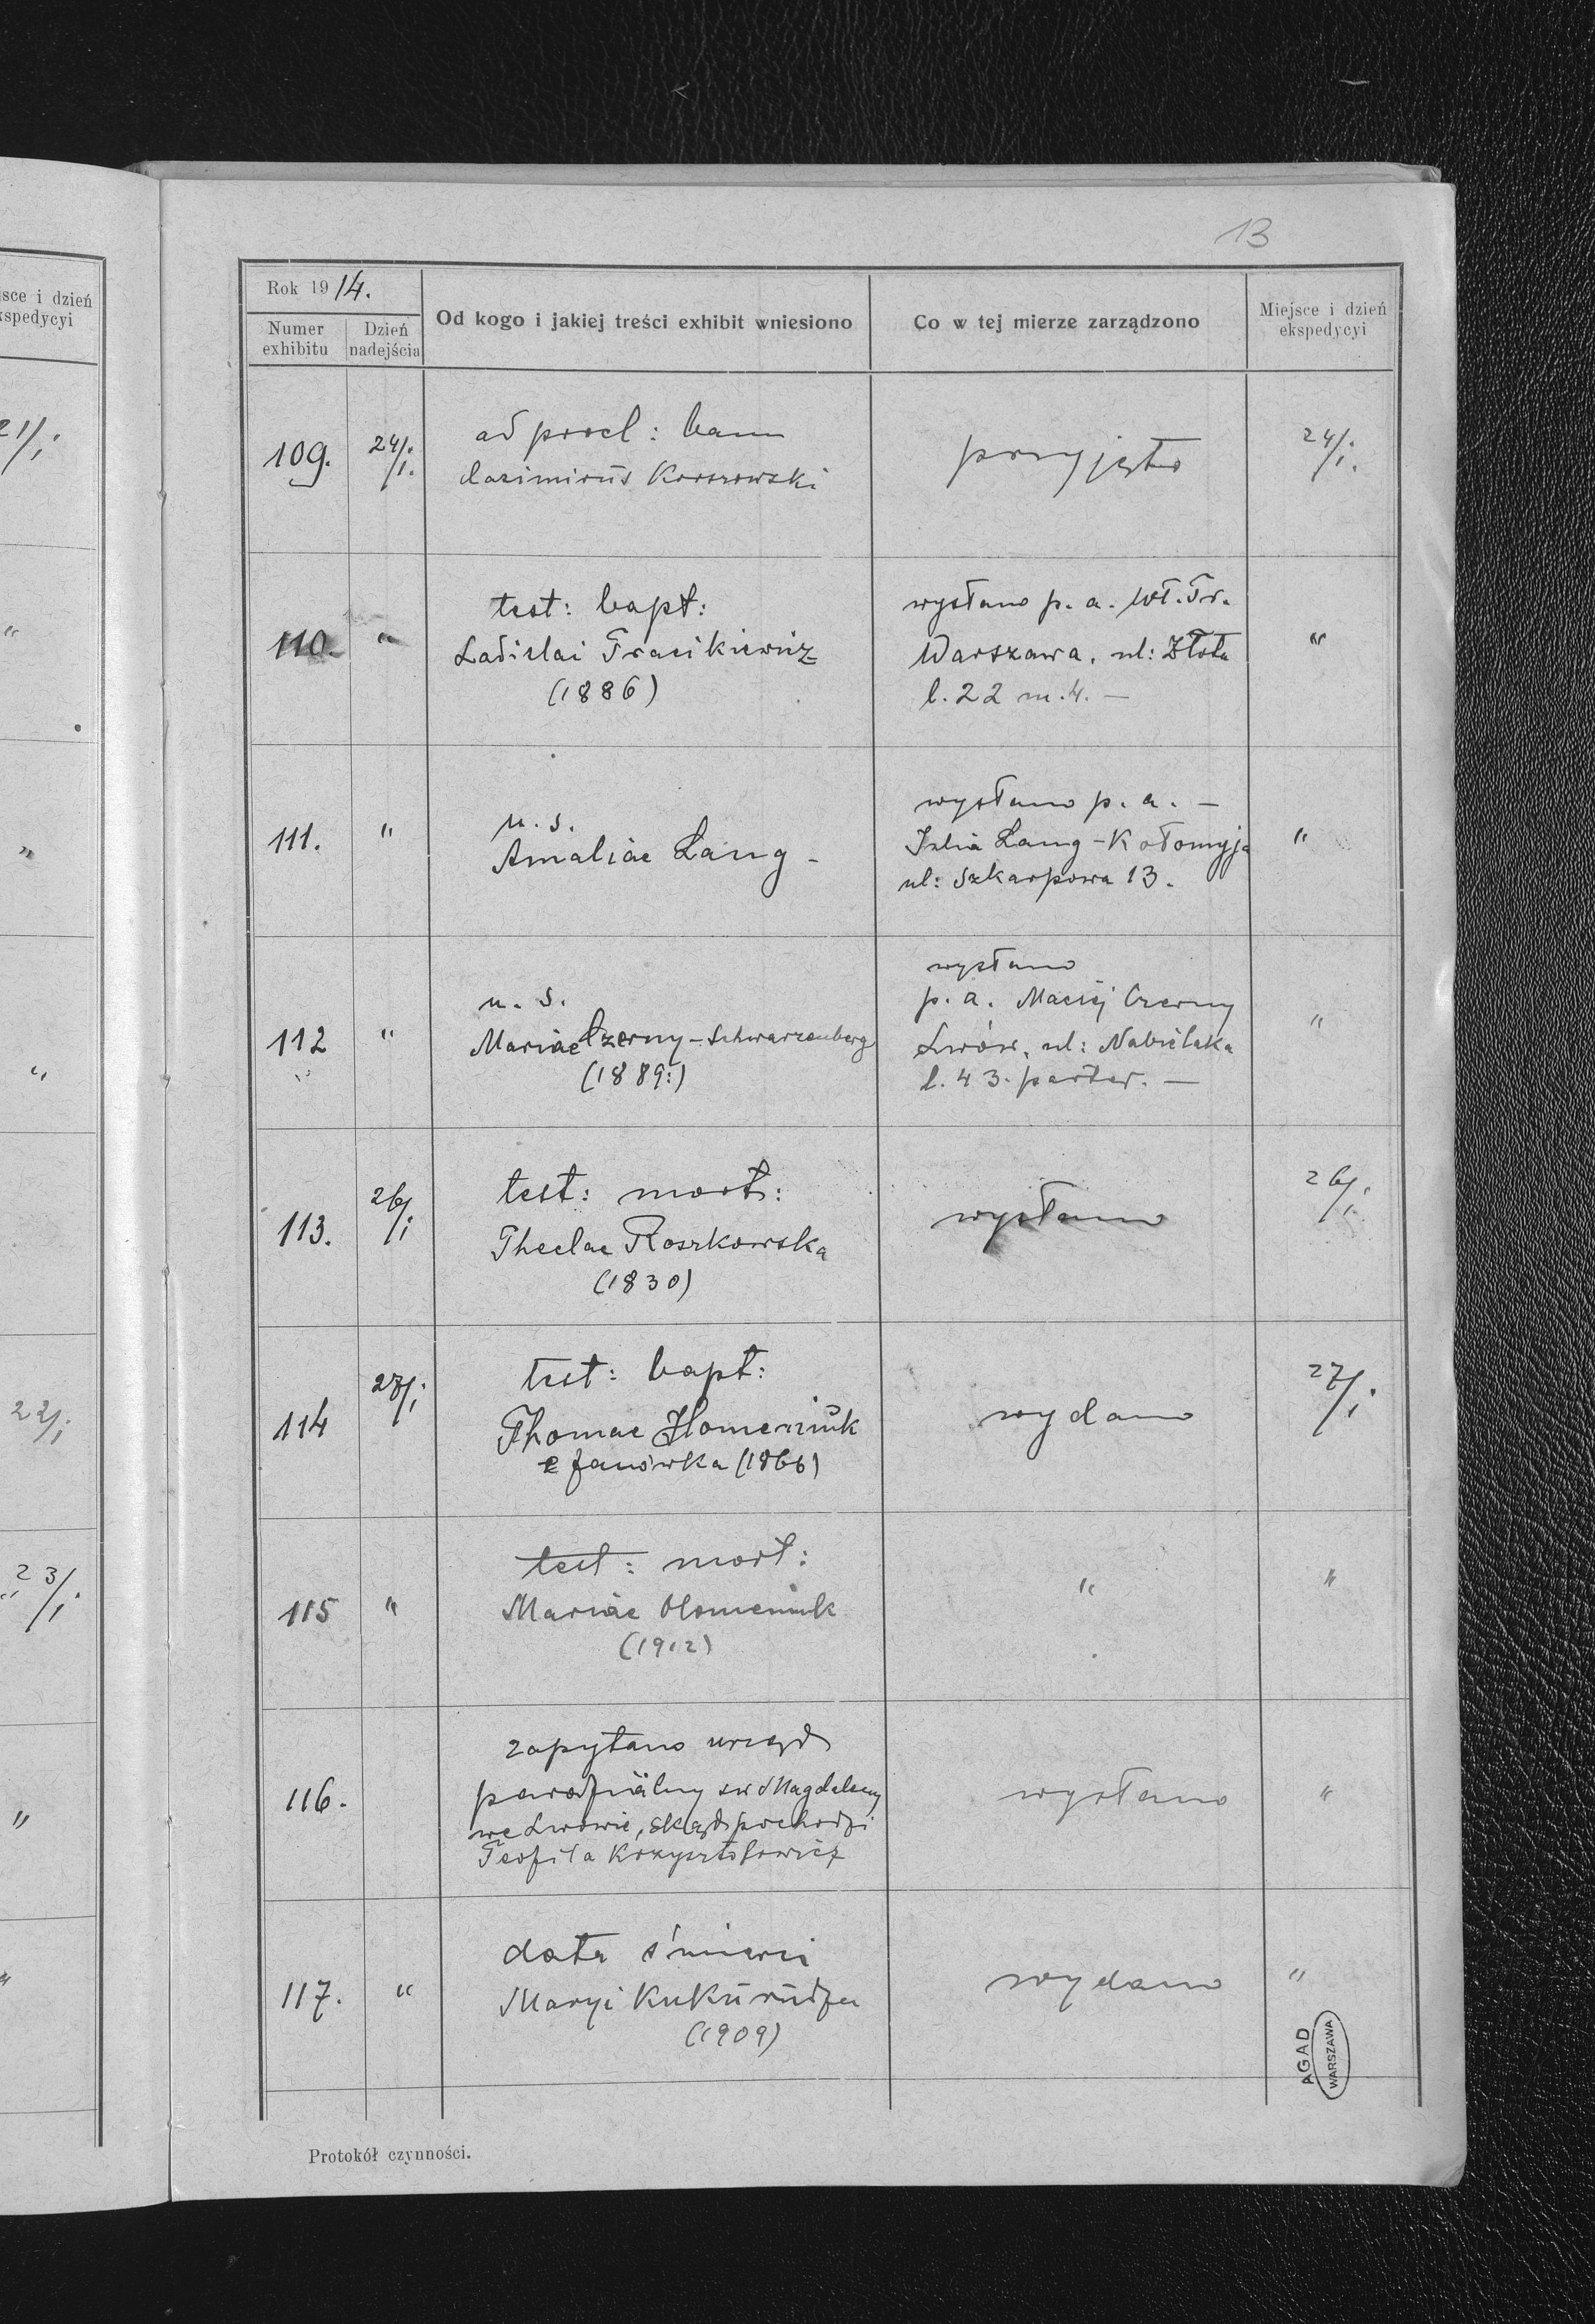 13
sce i dzień
kspedycyi
21/I
"
"
"
22/I
23/I
"
"
Rok 1914.
Numer exhibitu
Dzień nadejścia
Od kogo i jakiej treści exhibit wniesiono
Co w tej mierze zarządzono
Miejsce i dzień ekspedycyi
109.
24/I.
ad procl: bann
Casimirus Korszowski
przyjęto
24/I.
110.
"
test: bapt:
Ladislai Fracikiewicz
(1886)
wysłano p. a. Wł. Fr.
Warszawa. ul: Złota
l. 22 m. 4. —
"
111.
"
u. s.
Amaliae Lang -
wysłano p. a. —
Julia Lang - Kołomyja
ul: Szkarpowa 13.
"
112
"
u. s.
Mariae Czerny-Schwarzenberg
(1889:)
wysłano
p. a. Maciej Czerny
Lwów, ul: Nabielaka
l. 43. parter. —
"
113.
26/I
test: mort:
Theclae Roszkowska
(1830)
wysłano
26/I.
114
27/I
test: bapt:
Thomae Homeniuk
e Janówka (1866)
wydano
27/I.
115
"
test: mort:
Mariae Homeniuk
(1912)
"
"
116.
zapytano urząd
parafialny św Magdaleny
we Lwowie, skąd pochodzi
Teofila Krzysztofowicz
wysłano
"
117.
"
data śmierci
Maryi Kukurudza
(1909)
wydano
"
AGAD
WARSZAWA
Protokół czynności.